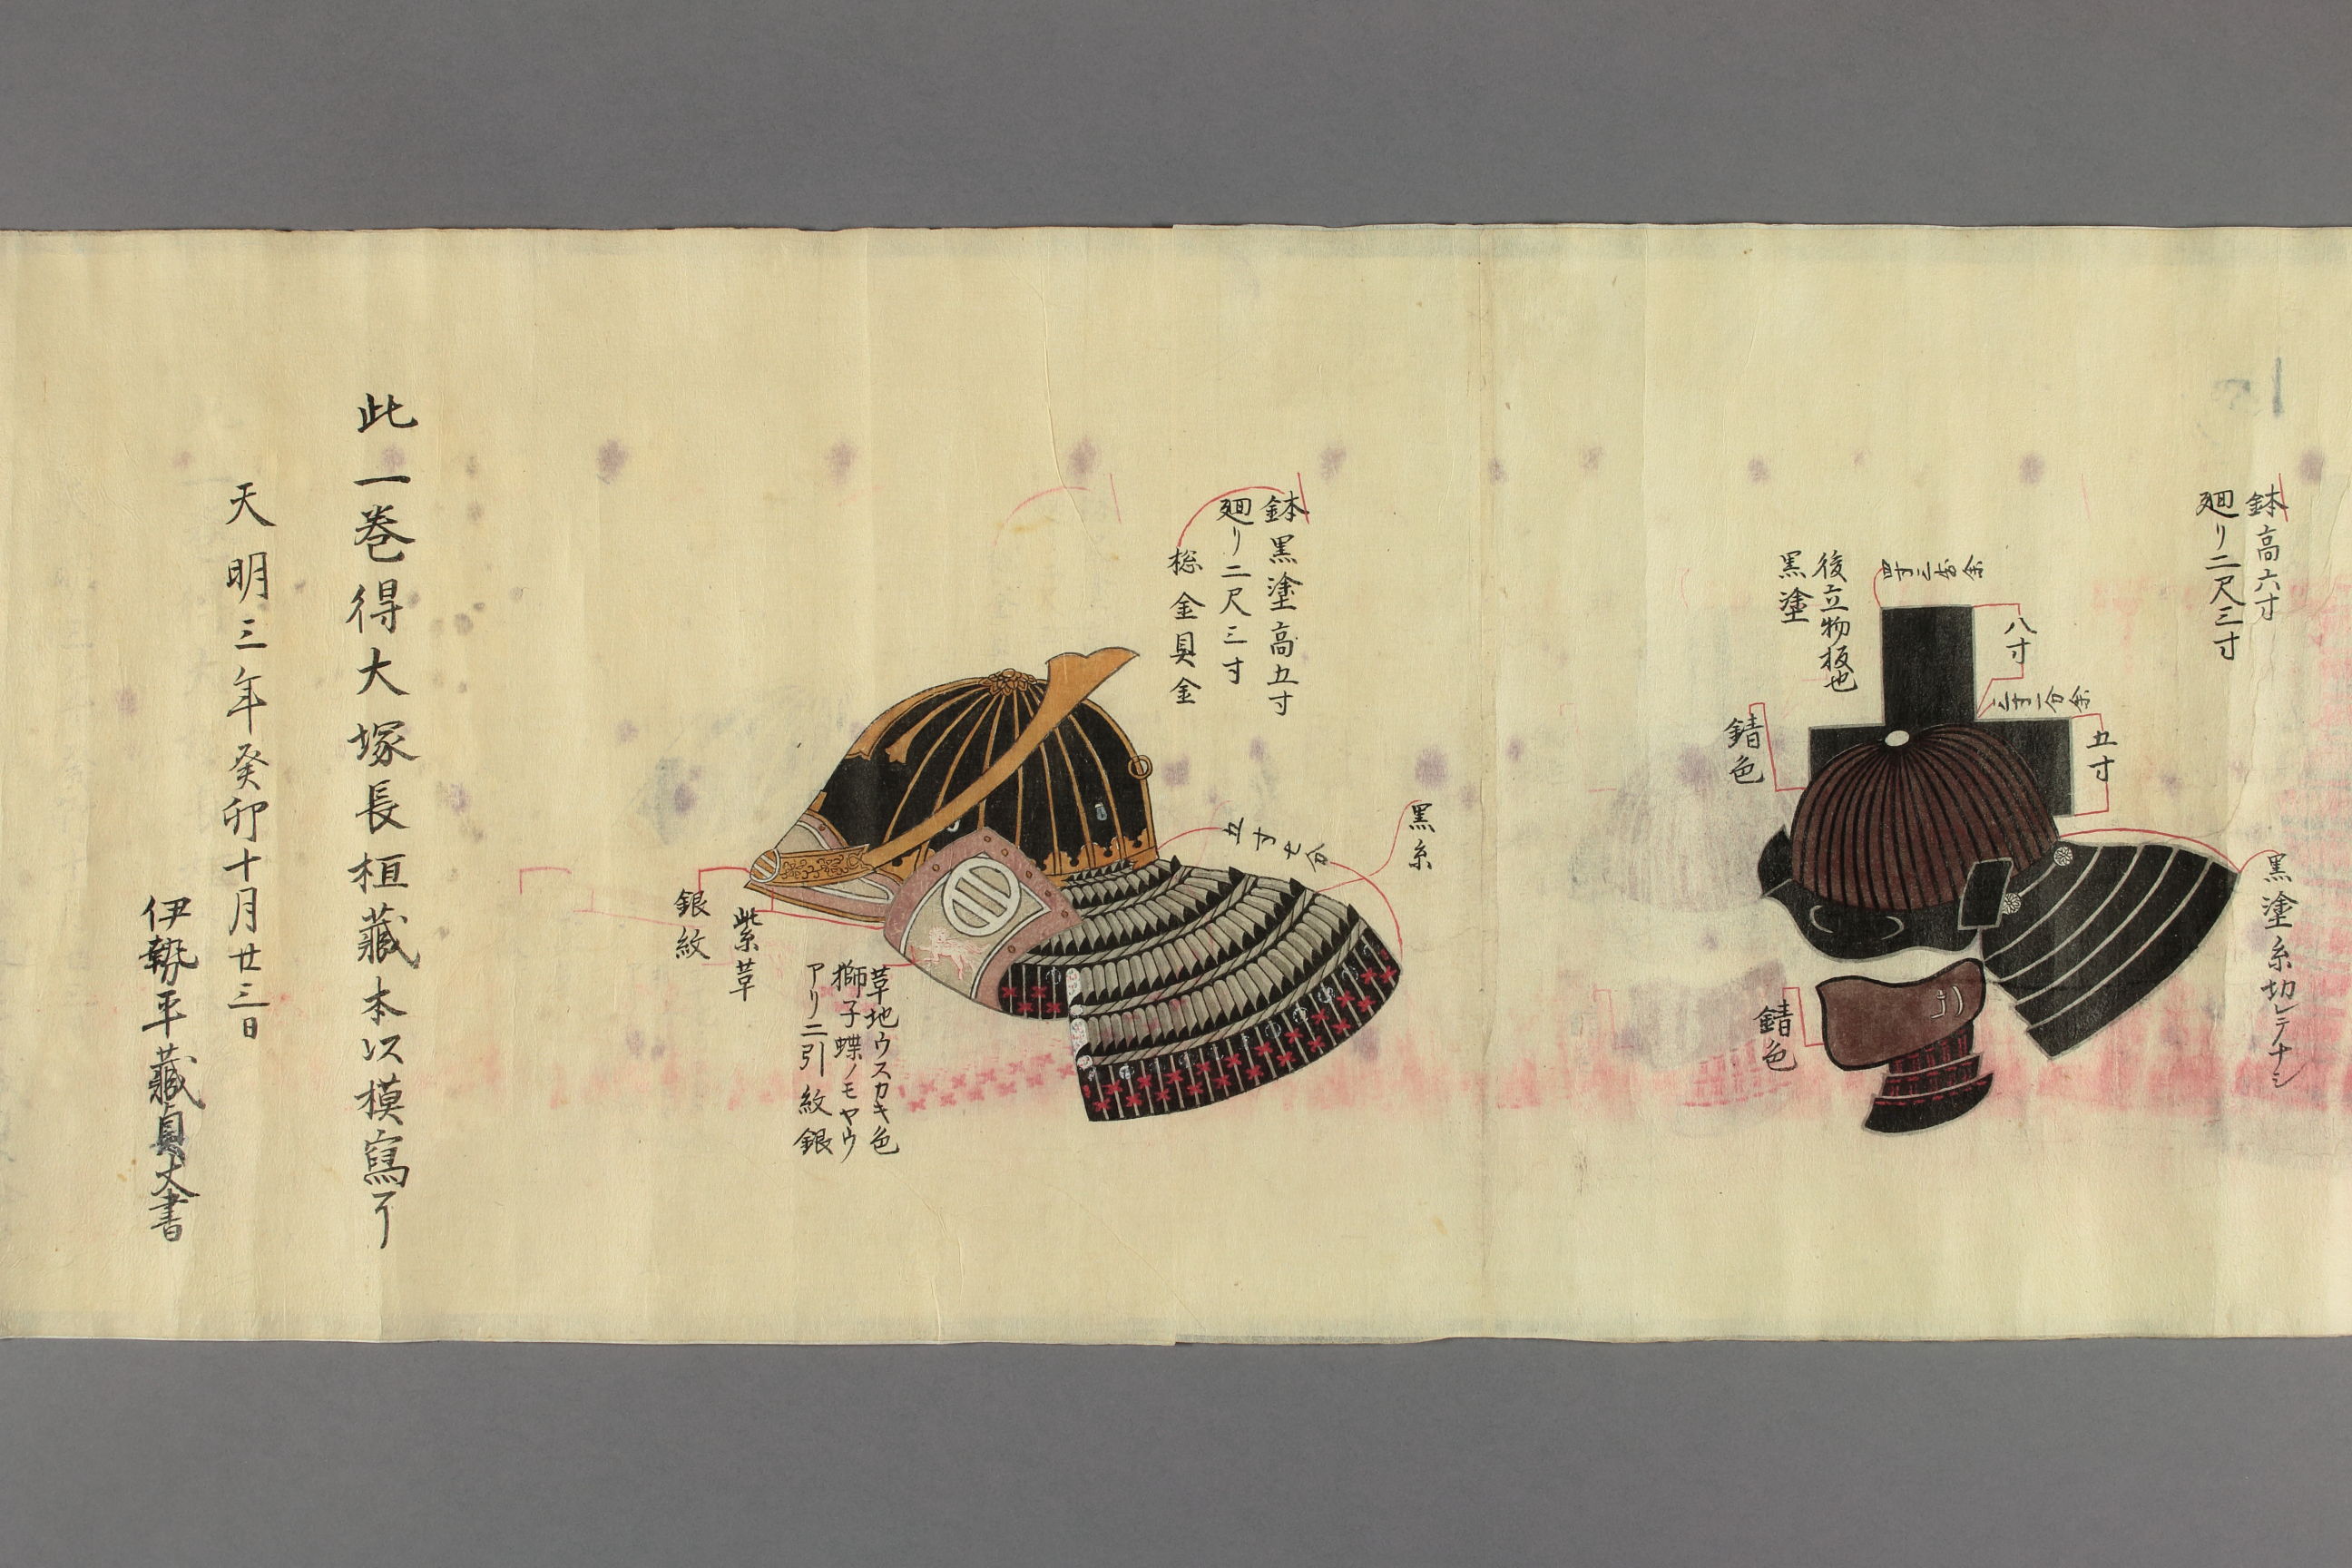 鉢高六寸
廻リ二尺三寸
黒塗糸切レテナシ
五寸
二寸一分余
八寸
四寸三分余
後立物板也
黒塗
錆色
錆色
黒糸
五寸七分
鉢黒塗高五寸
廻リ二尺三寸
総金具金
草地ウスカキ色
獅子蝶ノモヤウ
アリ二引紋銀
紫草
銀紋
此一巻得大塚長桓藏本以模寫了
天明三年癸卯十月廿三日
伊勢平藏貞丈書